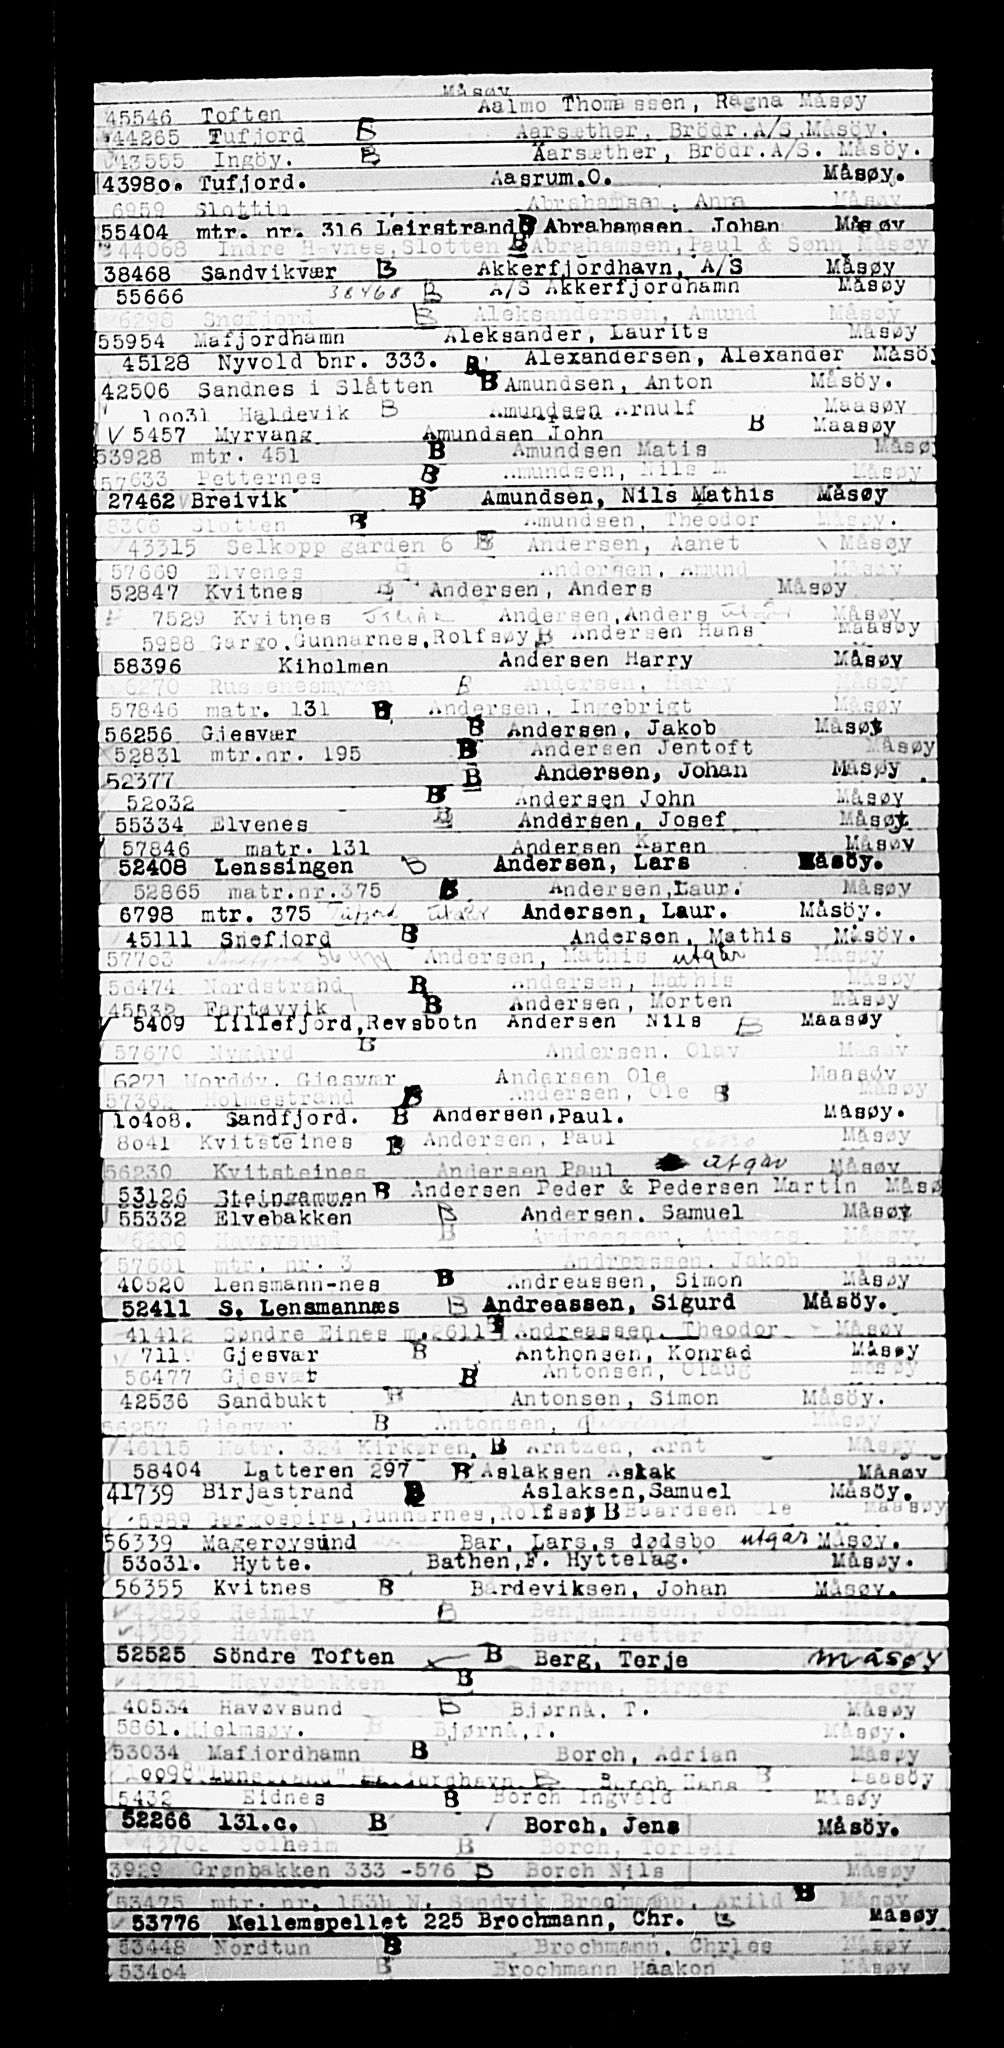 Måsøy
45546 Toften Aalmo Thomassen, Ragna Måsøy
44265 Tufjord B Aarsæther, Brödr.A/S.Måsöy.
43555 Ingöy. B Aarsæther, Brödr.A/S. Måsöy.
43980. Tufjord. Aasrum.O. Måsøy.
6959 Slottin Abrahamsen, Anna Måsøy
55404 mtr. nr. 316 Leirstrand B Abrahamsen Johan Måsøy
44068 Indre Havnes,Slotten B Abrahamsen,Paul & Sønn Måsøy
38468 Sandvikvær B Akkerfjordhavn, A/S Måsøy
55666 38468 B A/S Akkerfjordhamn Måsøy
6298 Snøfjord B Aleksandersen, Amund Måsøy
55954 Mafjordhamn Aleksander, Laurits Måsøy
45128 Nyvold bnr. 333. B Alexandersen, Alexander Måsöy
42506 Sandnes i Slåtten B Amundsen, Anton Måsöy.
10031 Haldevik B Amundsen Arnulf Maasøy
V 5457 Myrvang Amundsen John B Maasøy
53928 mtr. 451 B Amundsen Matis Måsø
57633 Petternes B Amundsen, Nils M Måsøy
27462 Breivik B Amundsen, Nils Mathis Måsøy
8306 Slotten B Amundsen, Theodor Måsøy.
43315 Selkopp gården 6 B Andersen, Aanet Måsøy
57669 Elvenes B Andersen, Amund Måsøy
52847 Kvitnes B Andersen, Anders Måsøy
7529 Kvitnes Andersen,Anders utgår Måsøy
5988 Gargo,Gunnarnes,Rolfsøy B Andersen Hans Maasøy
58396 Kiholmen Andersen Harry Måsøy
6270 Russenesmyren B Andersen, Harry Måsøy
57846 matr. 131 B Andersen, Ingebrigt Måsøy
56256 Gjesvær B Andersen, Jakob Måsøy
52831 mtr.nr. 195 B Andersen Jentoft Måsøy
52377 B Andersen, Johan Måsøy.
52032 B Andersen John Måsøy
55334 Elvenes B Andersen, Josef Måsøy
57846 matr. 131 Andersen Karen Måsøy
52408 Lenssingen B Andersen, Lars Måsöy.
52865 matr.nr.375 B Andersen,Laur. Måsøy
6798 mtr. 375 Tufjord utgår Andersen, Laur. Måsöy.
45111 Snefjord B Andersen, Mathis Måsöy.
57703 Sandfjord 56474 Andersen, Mathis utgår Måsøy
56474 Nordstrand B Andersen, Mathis Måsøy
45532 Fartøyvik B Andersen, Morten Måsøy
5409 Lillefjord,Revsbotn Andersen Nils B Maasøy
57670 Nygård B Andersen, Olav Måsøy
6271 Nordøy, Gjesvær Andersen Ole Maasøy
57362 Holmestrand B Andersen, Ole B Måsøy
10408. Sandfjord. B Andersen,Paul. Måsøy.
8041 Kvitsteines B Andersen, Paul Måsøy
56230 Kvitsteines Andersen Paul utgår Måsøy
53126 Steingammen B Andersen Peder & Pedersen Martin Måsø
55332 Elvebakken B Andersen, Samuel Måsøy
6200 Havøysund B Andreassen, Andreas. Måsøy.
57661 mtr. nr. 3 Andreassen, Jakob Måsøy
40520 Lensmann-nes B Andreassen, Simon Måsøy
52411 S. Lensmannæs B Andreassen, Sigurd Måsöy.
41412 Søndre Eines m.2611 B Andreassen, Theodor Måsøy
7119 Gjesvær B Anthonsen, Konrad Måsøy
56477 Gjesvær B Antonsen, Olaug Måsøy
42536 Sandbukt B Antonsen, Simon Måsöy.
56257 Gjesvær B Antonsen, Måsøy
46115 Matr. 324 Kirkøren, B Arntzen, Arnt Måsøy
58404 Latteren 297 B Aslaksen Aslak Måsøy
41739 Birjastrand B Aslaksen,Samuel Måsöy.
5989 Gargospira,Gunnarnes,Rolfsøy B Baardsen Ole Maasøy
56339 Magerøysund Bar, Lars.s dødsbo utgår Måsøy.
53031. Hytte. Bathen,F. Hyttelag. Måsøy.
56355 Kvitnes B Bårdeviksen, Johan Måsøy.
43856 Heimly B Benjaminsen, Johan Måsøy
43853 Havnen Berg, Petter Måsøy
52525 Söndre Toften B Berg, Terje Måsøy
43751 Havøybakken B Bjørnå, Birger Måsøy
40534 Havøysund B Bjørnå, T. Måsøy
5861. Hjelmsøy. B Bjørnå,T. Måsøy.
53034 Mafjordhamn B Borch, Adrian Måsøy
10098 "Lunstrand" Mafjordhavn B Borch Hans B Maasöy
5432 Eidnes B Borch Ingvald Måsøy
52266 131.c. B Borch, Jens Måsöy.
43702 Solheim B Borch, Torleif Måsøy
3929 Grønbakken 333 -576 B Borch Nils Måsøy
53475 mtr. nr. 153b N. Sandvik Brochmann, Arild B Måsøy
53776 Mellemspellet 225 Brochmann, Chr. B Måsøy
53448 Nordtun B Brochmann, Chrles Måsøy
53404 B Brochmann Håakon Måsøy